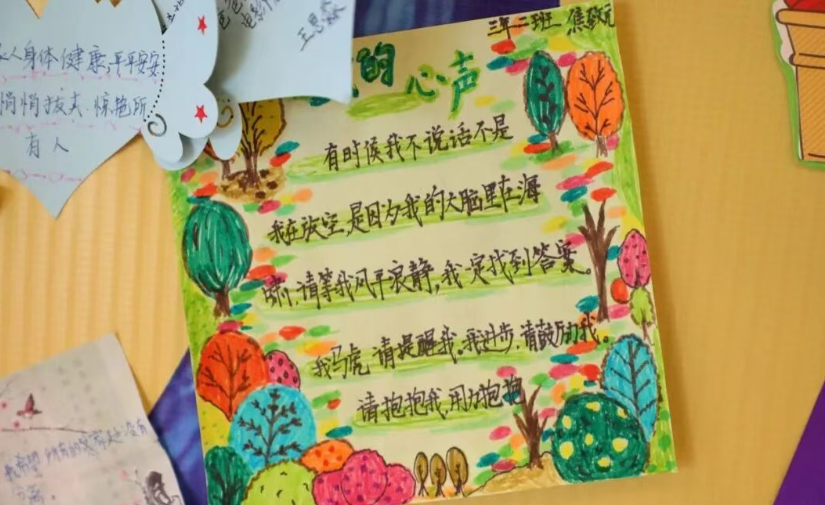 人身体健康,平平安安
悄悄拔尖,惊艳所
有人
王思淼
三年二班 焦敬元
的心声
有时候我不说话不是
我在放空,是因为我的大脑里在海
啸,请等我风平浪静,我一定找到答案。
我马虎,请提醒我。我进步,请鼓励我。
请抱抱我,用力抱抱
我希望